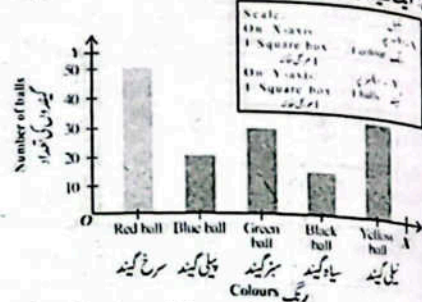 Scale:
On X-axis
1 Square box
On Y-axis
1 Square box
Y
50
40
30
20
10
O
Number of balls
گیندوں کی تعداد
Red ball Blue ball Green ball Black ball Yellow ball X
سرخ گیند پیلی گیند سبز گیند سیاہ گیند نیلی گیند
Colours رنگ